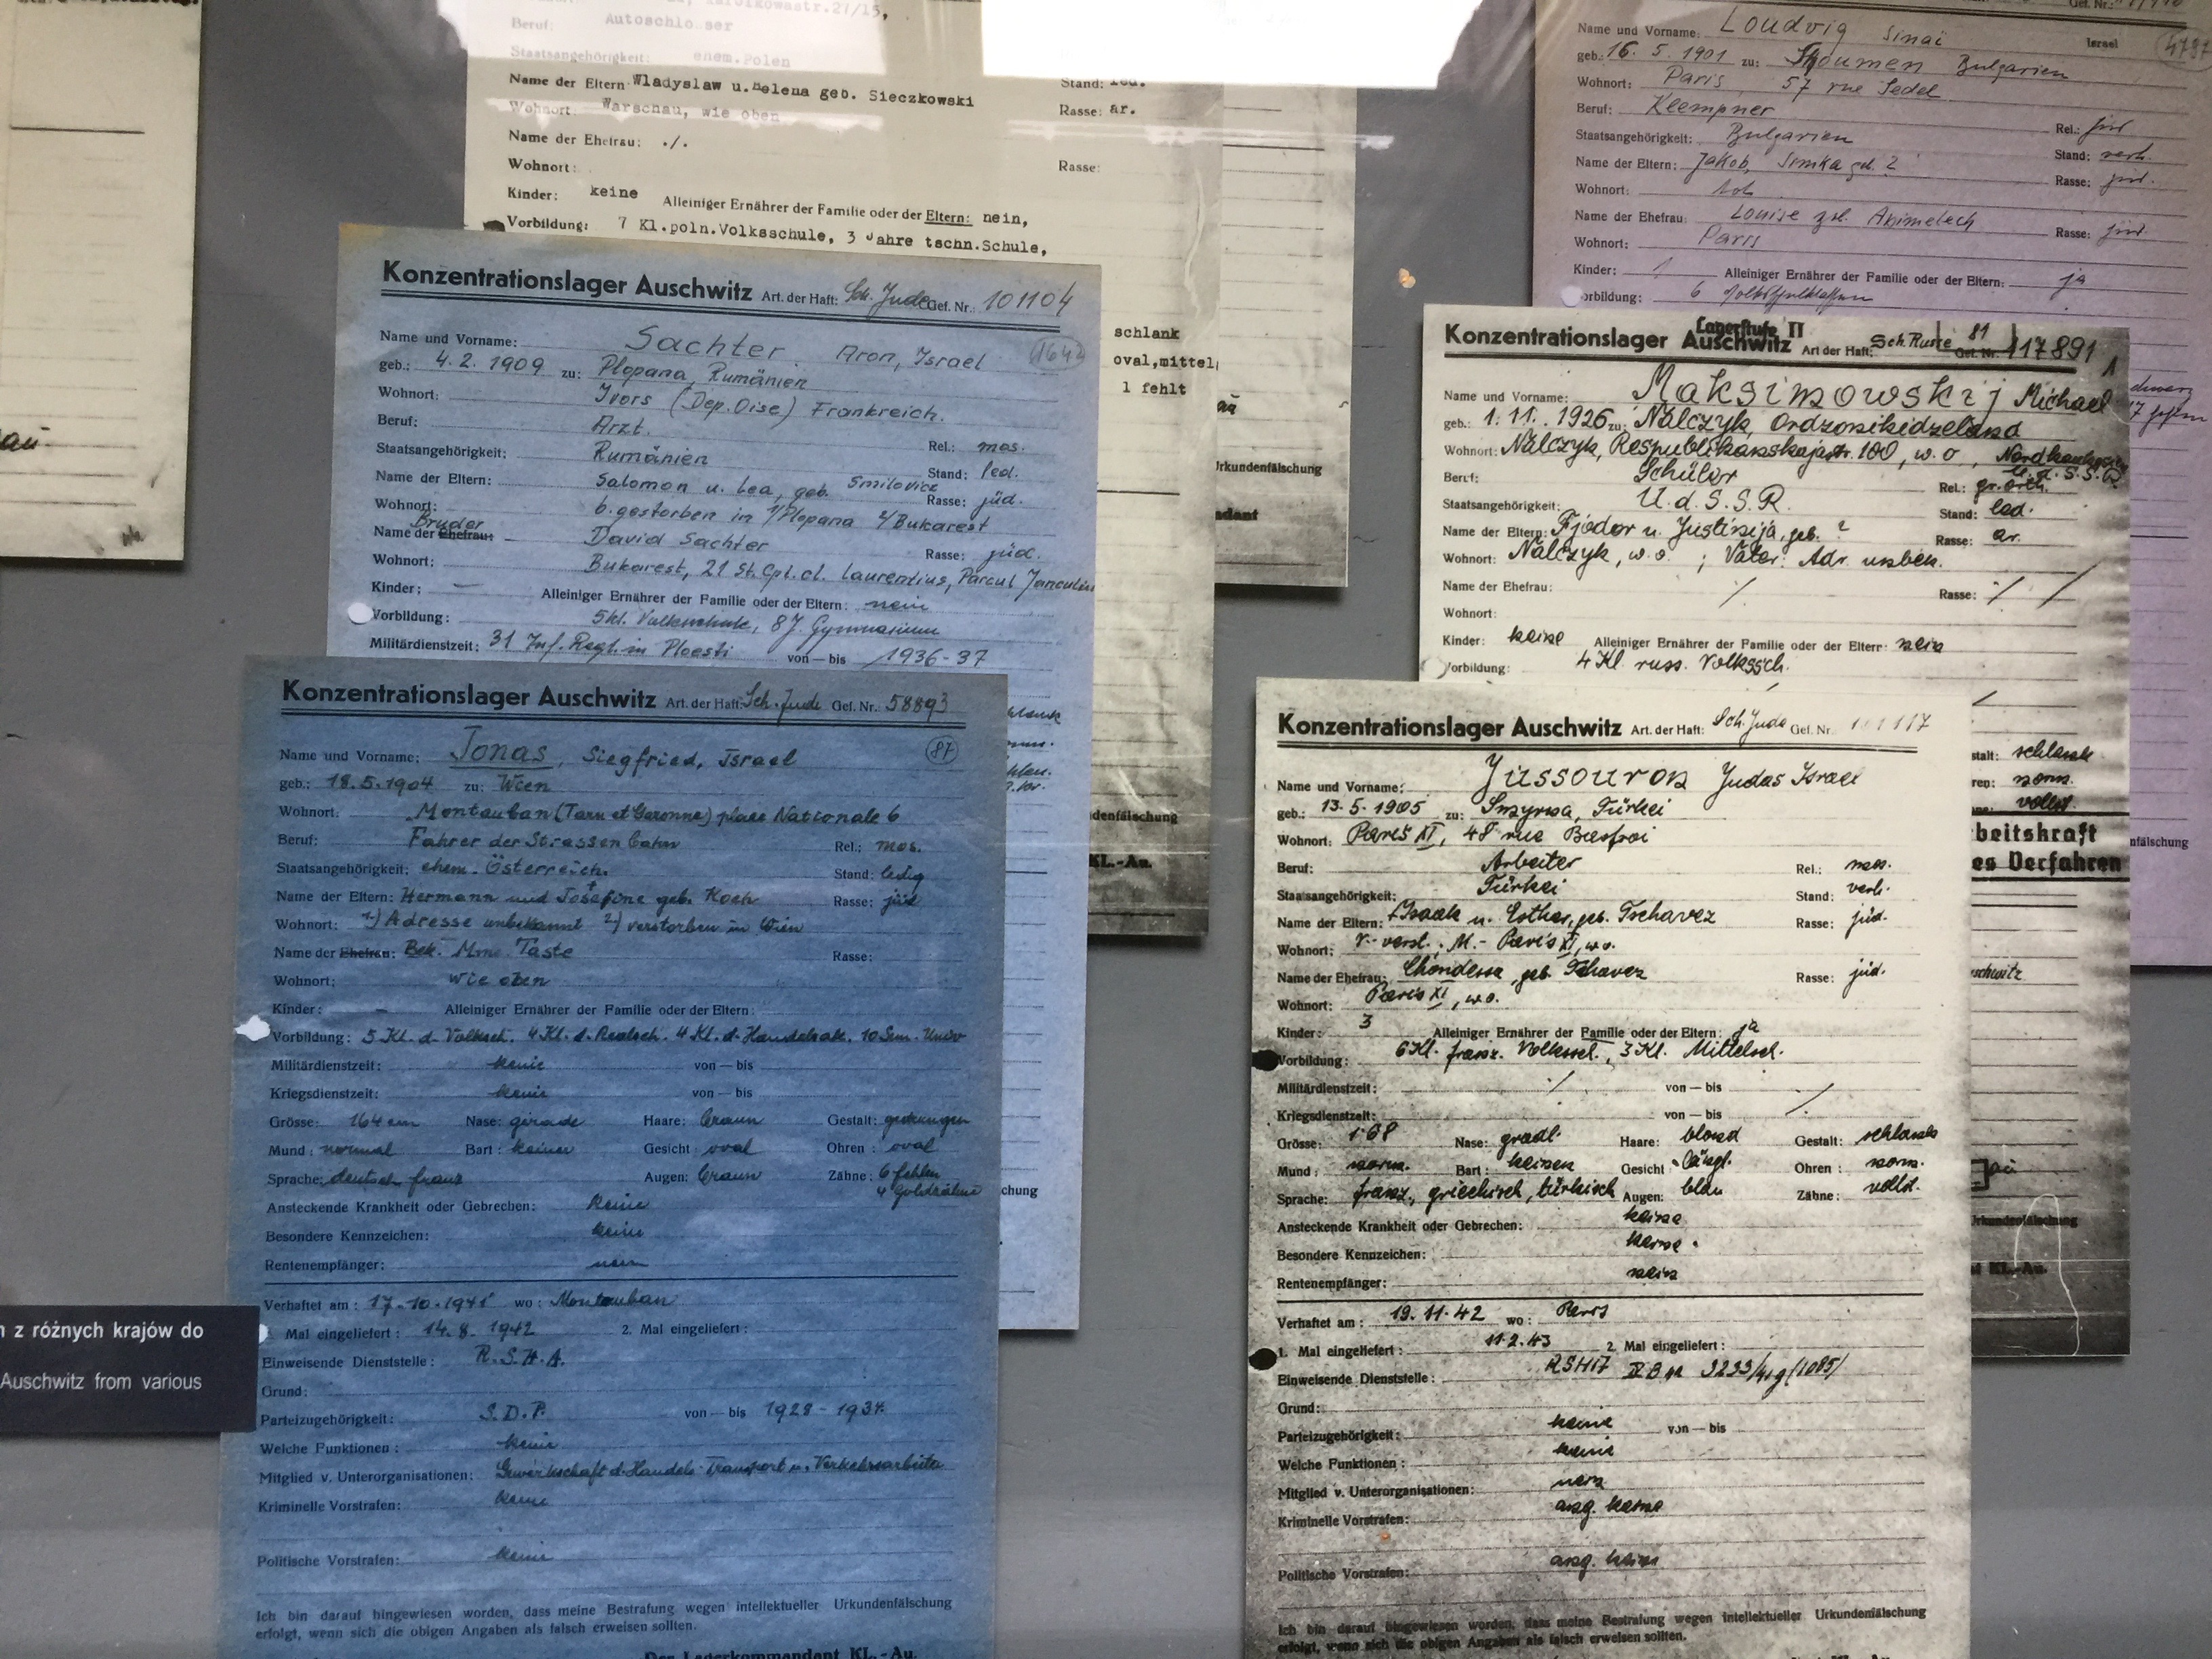 Beruf: Autoschlo.ser
Staatsangehörigkeit: ehem.Polen
Name der Eltern: Wladyslaw u.Helena geb. Sieczkowski Stand: led.
Wohnort: Warschau, wie oben Rasse: ar.
Name der Ehefrau: ./.
Wohnort: Rasse:
Kinder: keine Alleiniger Ernährer der Familie oder der Eltern: nein,
Vorbildung: 7 Kl.poln.Volksschule, 3 Jahre techn.Schule,
schlank
oval,mittel
1 fehlt
Urkundenfälschung
Name und Vorname: Loudvig Sinaï Israel
geb: 16. 5. 1901 zu: Bulgarien
Wohnort: Paris, 57 rue Sedel
Beruf: Klempner
Staatsangehörigkeit: Bulgarien Rel.: jüd
Name der Eltern: Jakob, Simka geb. ? Stand: verh.
Wohnort: Rasse: jüd.
Name der Ehefrau: Louise geb.
Wohnort: Paris Rasse: jüd.
Kinder: 1 Alleiniger Ernährer der Familie oder der Eltern: ja
orbildung: 6
Konzentrationslager Auschwitz Art. der Haft: Sch. Jude Gef. Nr.: 101104
Name und Vorname: Sachter Aron, Israel
geb.: 4. 2. 1909 zu: Plopana, Rumänien
Wohnort: Ivors (Dep. Oise) Frankreich.
Beruf: Arzt.
Staatsangehörigkeit: Rumänien Rel.: mos.
Name der Eltern: Salomon u. Lea, geb. Smilovick Stand: led.
Wohnort: b. gestorben in 1/Plopana 2/Bukarest Rasse: jüd.
Bruder
Name der Ehefrau: David Sachter
Wohnort: Bukarest, 21 St. Cpt. cl. Laurentius, Parcul Rasse: jüd.
Kinder: — Alleiniger Ernährer der Familie oder der Eltern: nein
Vorbildung: 5 kl. Volksschule, 8 J. Gymnasium
Militärdienstzeit: 31 Inf. Regt. in Ploesti von — bis 1936-37
denfälschung
KL.-Au.
Lagerstufe II
Konzentrationslager Auschwitz Art der Haft: Sch. Russe 81 Gef. Nr. 117891
Name und Vorname: Maksimowskij Michael
geb.: 1. 11. 1926 zu: Nalczyk, Ordzonikidzeland
Wohnort: Nalczyk, Respublikanskaja str. 100, w. o.,
Beruf: Schüler Rel.: gr. orth.
Staatsangehörigkeit: U. d. S. S. R. Stand: led.
Name der Eltern: Fjodor u. Justinija, geb. ? Rasse: ar.
Wohnort: Nalczyk, w. o. ; Vater: Adr. unbek.
Name der Ehefrau: / Rasse: /
Wohnort:
Kinder: keine Alleiniger Ernährer der Familie oder der Eltern: nein
Vorbildung: 4 Kl. russ. Volkssch.
stalt: schlank
ren: norm.
vollst.
beitskraft
es Verfahren
Konzentrationslager Auschwitz Art der Haft: Sch. Jude Gef. Nr.: 58893
87
Name und Vorname: Jonas, Siegfried, Israel
geb.: 18. 5. 1904 zu: Wien
Wohnort: Montauban (Tarn et Garonne) place Nationale 6
Beruf: Fahrer der Strassenbahn Rel.: mos.
Staatsangehörigkeit: ehem. Österreich. Stand: ledig
Name der Eltern: Hermann und Josefine geb. Koch Rasse: jüd
Wohnort: 1.) Adresse unbekannt 2.) verstorben in Wien
Name der Ehefrau: Bek. Mme. Taste Rasse:
Wohnort: wie oben
Kinder: — Alleiniger Ernährer der Familie oder der Eltern:
Vorbildung: 5 Kl. d. Volksch. 4 Kl. d. Realsch. 4 Kl. d. Handelsak. 10 Sem. Univ
Militärdienstzeit: keine von — bis
Kriegsdienstzeit: keine von — bis
Grösse: 164 cm Nase: gerade Haare: braun Gestalt: gedrungen
Mund: normal Bart: keiner Gesicht: oval Ohren: oval
Sprache: deutsch franz Augen: braun Zähne: 6 fehlen
4 Goldzähne
Ansteckende Krankheit oder Gebrechen: keine
Besondere Kennzeichen: keine
Rentenempfänger: nein
Verhaftet am: 17. 10. 1941 wo: Montauban
Mal eingeliefert: 14. 8. 1942 2. Mal eingeliefert:
Einweisende Dienststelle: R. S. H. A.
Grund:
Parteizugehörigkeit: S. D. P. von — bis 1928 - 1934
Welche Funktionen: keine
Mitglied v. Unterorganisationen: Gewerkschaft d. Handels Transport u. Verkehrsarbeiter
Kriminelle Vorstrafen: keine
Politische Vorstrafen: keine
Ich bin darauf hingewiesen worden, dass meine Bestrafung wegen intellektueller Urkundenfälschung
erfolgt, wenn sich die obigen Angaben als falsch erweisen sollten.
Der Lagerkommandant KL.-Au.
chung
Konzentrationslager Auschwitz Art der Haft: Sch. Jude Gef. Nr. 101117
Name und Vorname: Jussouron Judas Israel
geb.: 13. 5. 1905 zu: Smyrna, Türkei
Wohnort: Paris XI, 48 rue Basfroi
Beruf: Arbeiter Rel.: mos.
Staatsangehörigkeit: Türkei Stand: verh.
Name der Eltern: Isaak u. Esther, geb. Tschavez Rasse: jüd.
Wohnort: V.- verst., M.- Paris XI, w. o.
Name der Ehefrau: Chondessa, geb. Tschavez Rasse: jüd.
Wohnort: Paris XI, w. o.
Kinder: 3 Alleiniger Ernährer der Familie oder der Eltern: ja
Vorbildung: 6 Kl. franz. Volkssch., 3 Kl. Mittelsch.
Militärdienstzeit: / von — bis /
Kriegsdienstzeit: von — bis /
Grösse: 1.68 Nase: gradl. Haare: blond Gestalt: schlank
Mund: norm. Bart: keinen Gesicht: längl. Ohren: norm.
Sprache: franz., griechisch, türkisch Augen: blau Zähne: vollst.
Ansteckende Krankheit oder Gebrechen: keine
Besondere Kennzeichen: keine.
Rentenempfänger: nein
Verhaftet am: 19. 11. 42 wo: Paris
1. Mal eingeliefert: 11. 2. 43 2. Mal eingeliefert:
Einweisende Dienststelle: RSHA IV B 4a 3233/41g (1085)
Grund:
Parteizugehörigkeit: keine von — bis
Welche Funktionen: keine
Mitglied v. Unterorganisationen: nein
Kriminelle Vorstrafen: ang. keine
Politische Vorstrafen: ang. keine
Ich bin darauf hingewiesen worden, dass meine Bestrafung wegen intellektueller Urkundenfälschung
erfolgt, wenn sich die obigen Angaben als falsch erweisen sollten.
Urkundenfälschung
KL.-Au.
z różnych krajów do
Auschwitz from various